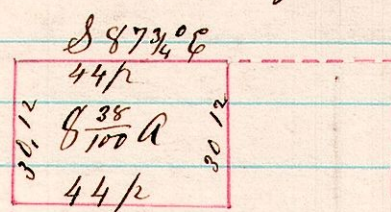 S 87 3/4° E
44 p
30,12
8 38/100 A
30 12
44 p